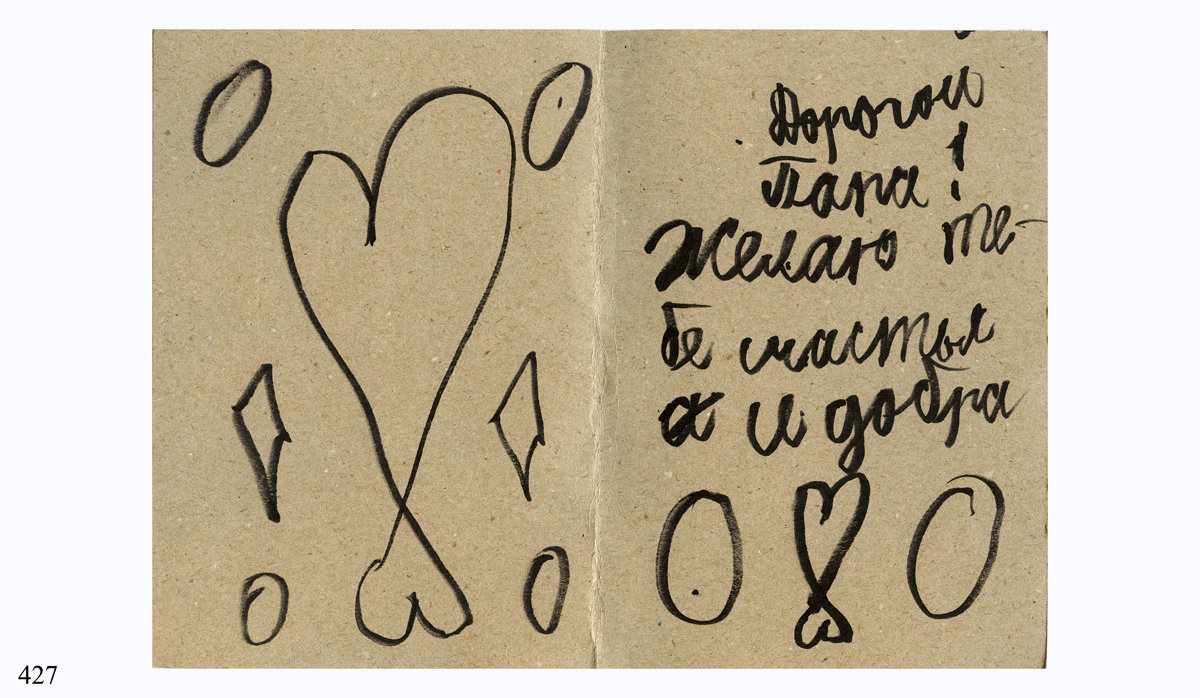 Дорогой
Папа!
Желаю те-
бе счастья
я и добра
427